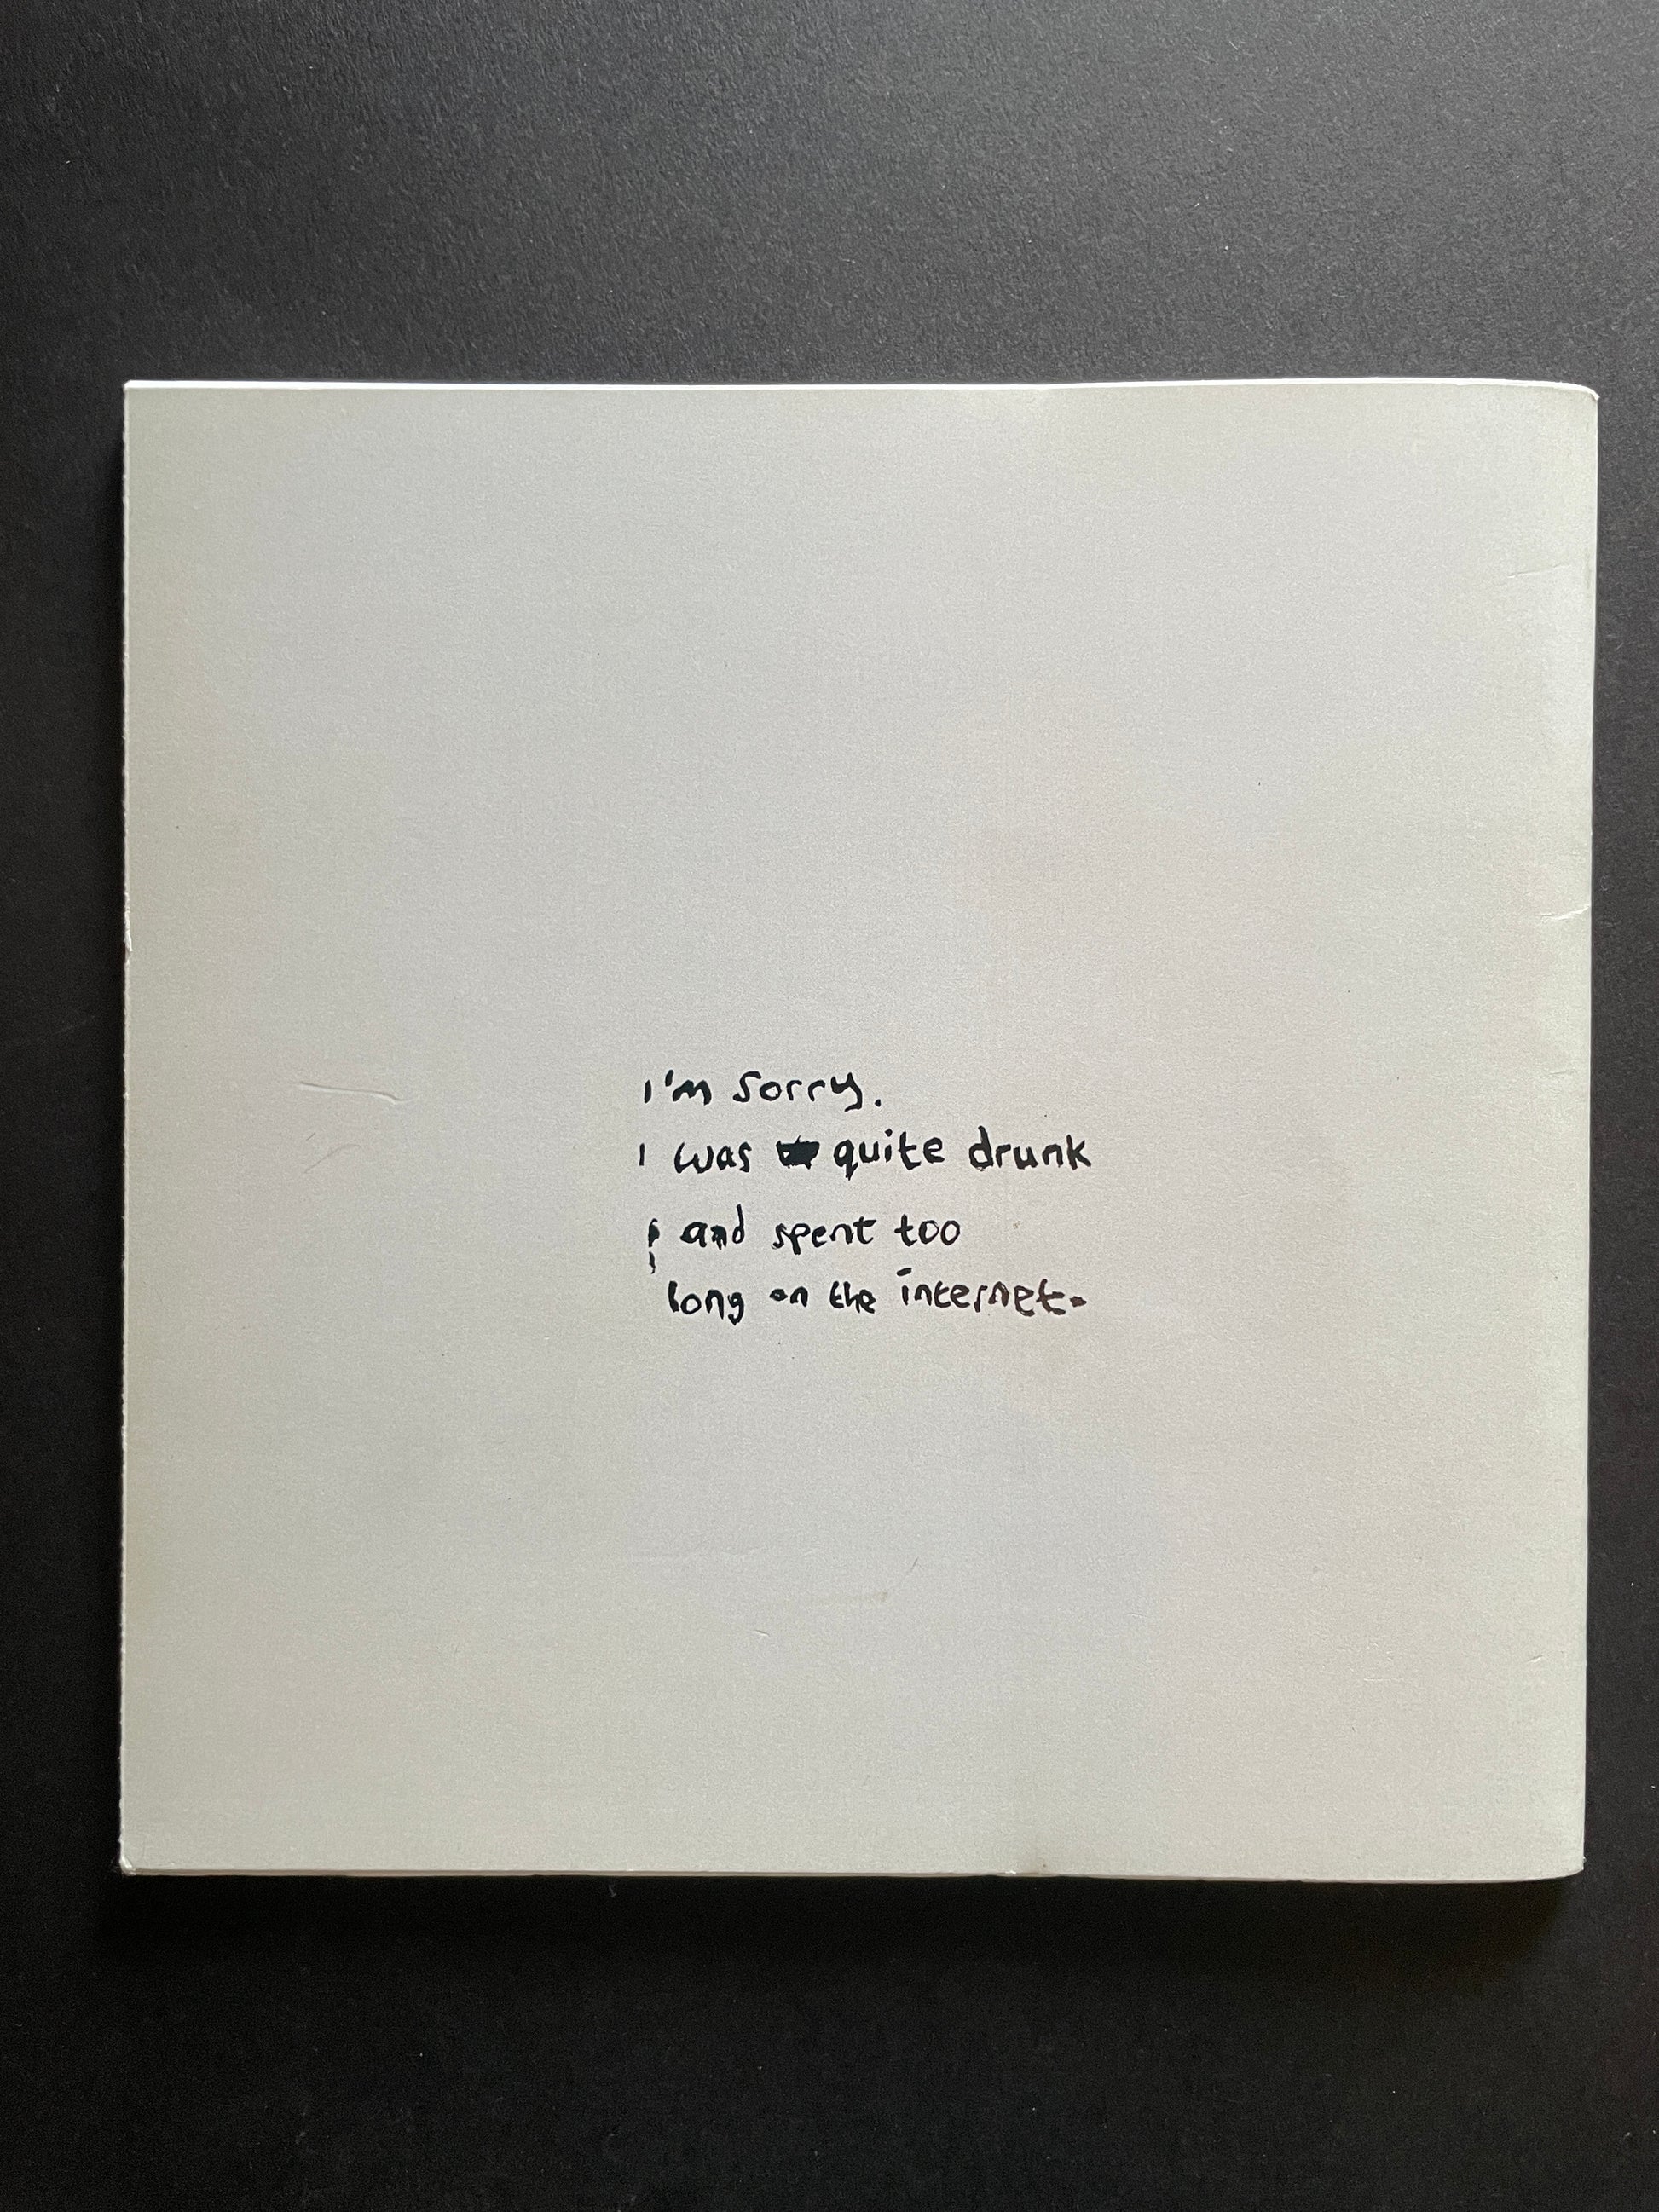 I'm sorry.
I was quite drunk
and spent too
long on the internet.